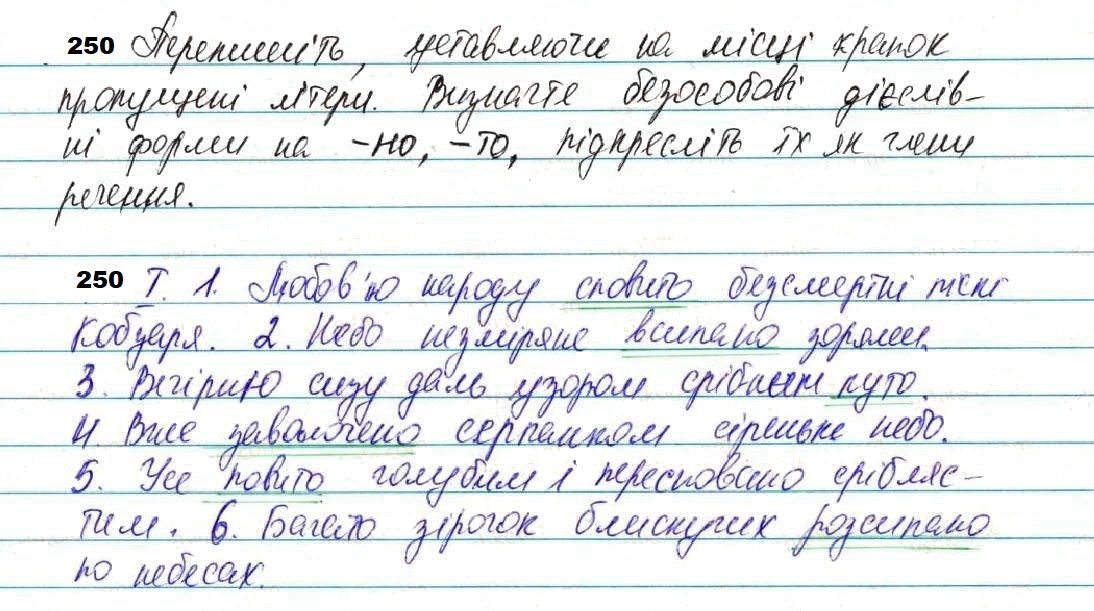 250 Перепишіть, уставляючи на місці крапок
пропущені літери. Визначте безособові дієслів-
ні форми на -но, -то, підкресліть їх як члени
речення.
250 I. 1. Любов'ю народу сповито безсмертні пісні
Кобзаря. 2. Небо незміряне всипано зорями.
3. Вечірню сизу даль узором срібним куто.
4. Вже заволочено серпанком сіреньке небо.
5. Усе повито голубим і пересновано срібляс-
тим. 6. Багато зірочок блискучих розсипано
по небесах.